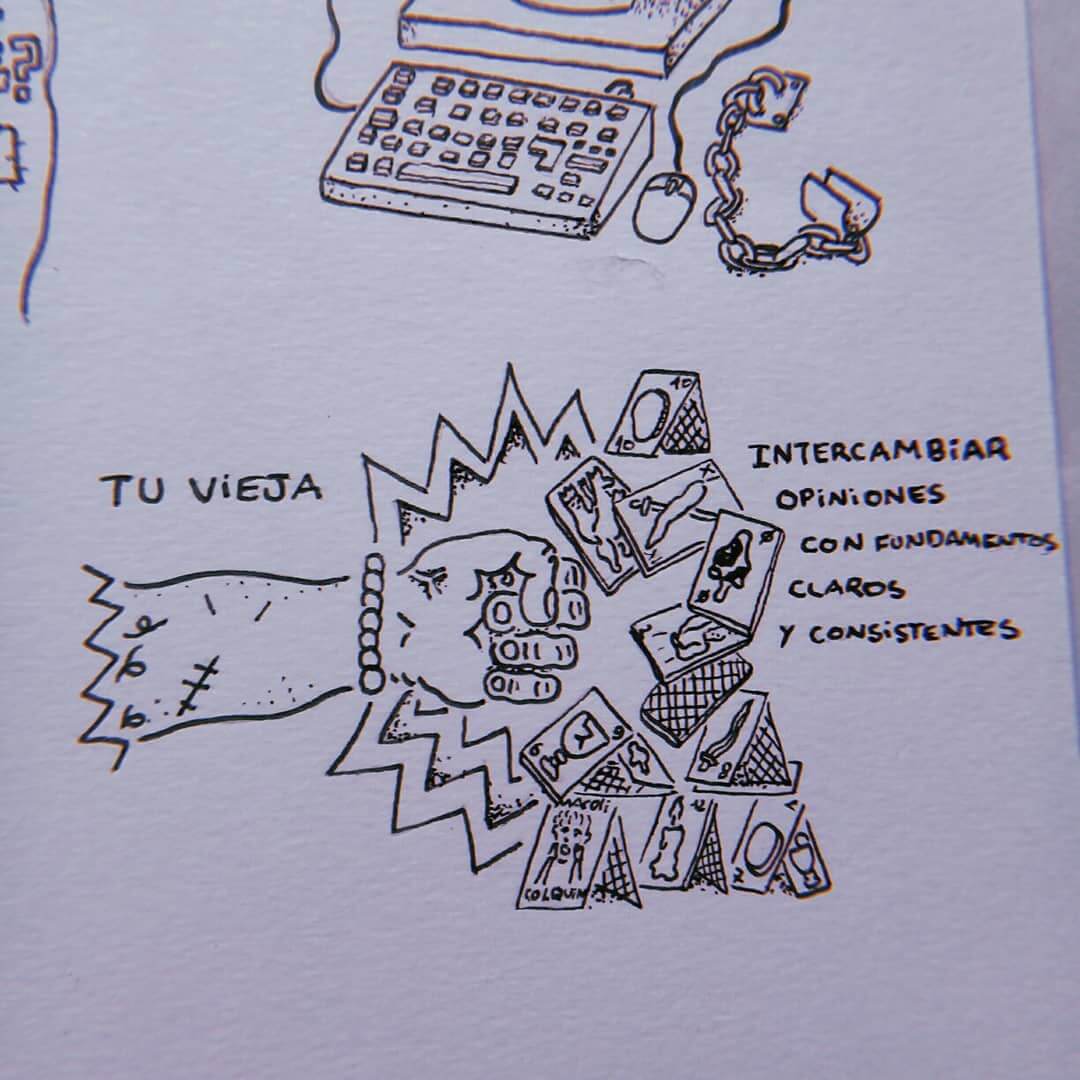 TU VIEJA
INTERCAMBIAR
OPINIONES
CON FUNDAMENTOS
CLAROS
Y CONSISTENTES
10
10
X
X
6
9
8
MACOLI
COLQUIN
12
2